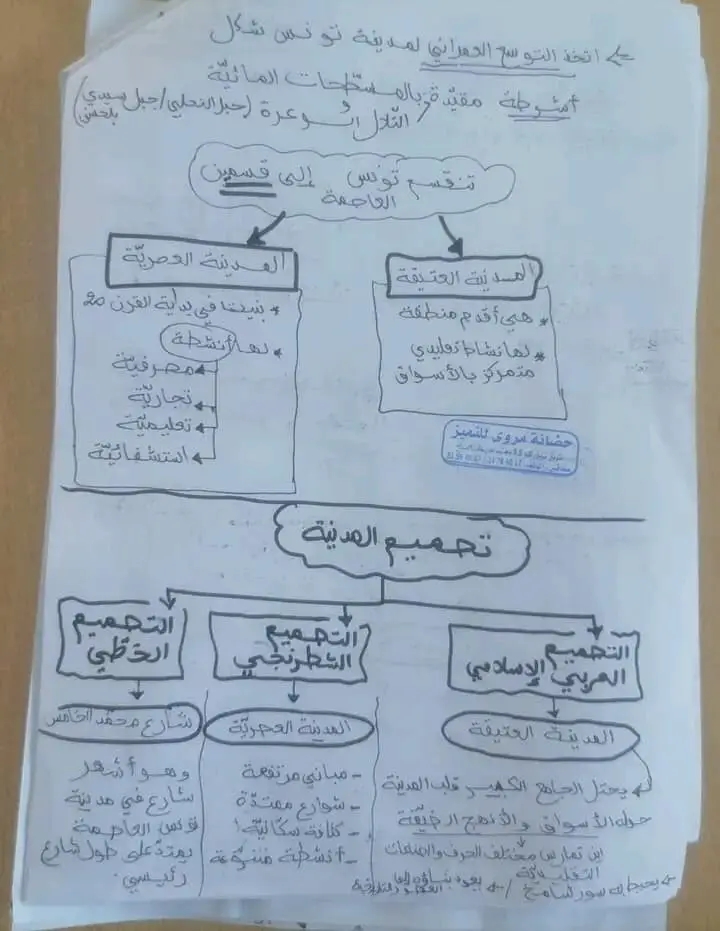 ← اتخذ التوسع العمراني لمدينة تونس شكل
أنشوطة مقيّدة بالمسطّحات المائيّة
و التلال الوعرة (جبل النحلي/جبل سيدي بلحسن)
تنقسم تونس إلى قسمين
العاصمة
المدينة العتيقة
* هي أقدم منطقة
* لها نشاط تقليدي
متمركز بالأسواق
المدينة العصريّة
* بنيت في بداية القرن 20
* لها أنشطة
مصرفيّة
تجاريّة
تعليميّة
استشفائيّة
حضانة مروى للتميز
تصميم المدنية
التصميم
العربي الإسلامي
المدينة العتيقة
يحتل الجامع الكبير قلب المدينة
حوله الأسواق والأنهج الضيّقة
اين تمارس مختلف الحرف والصناعات
التقليديّة
← يحيط به سور شامخ / ← يعود بناؤه
التصميم
الشطرنجي
المدينة العصريّة
- مباني مرتفعة
- شوارع ممتدّة
- كثافة سكانيّة
- أنشطة متنوّعة
التصميم
الخطّي
شارع محمد الخامس
وهو أشهر
شارع في مدينة
تونس العاصمة
يمتدّ على طول شارع
رئيسي.